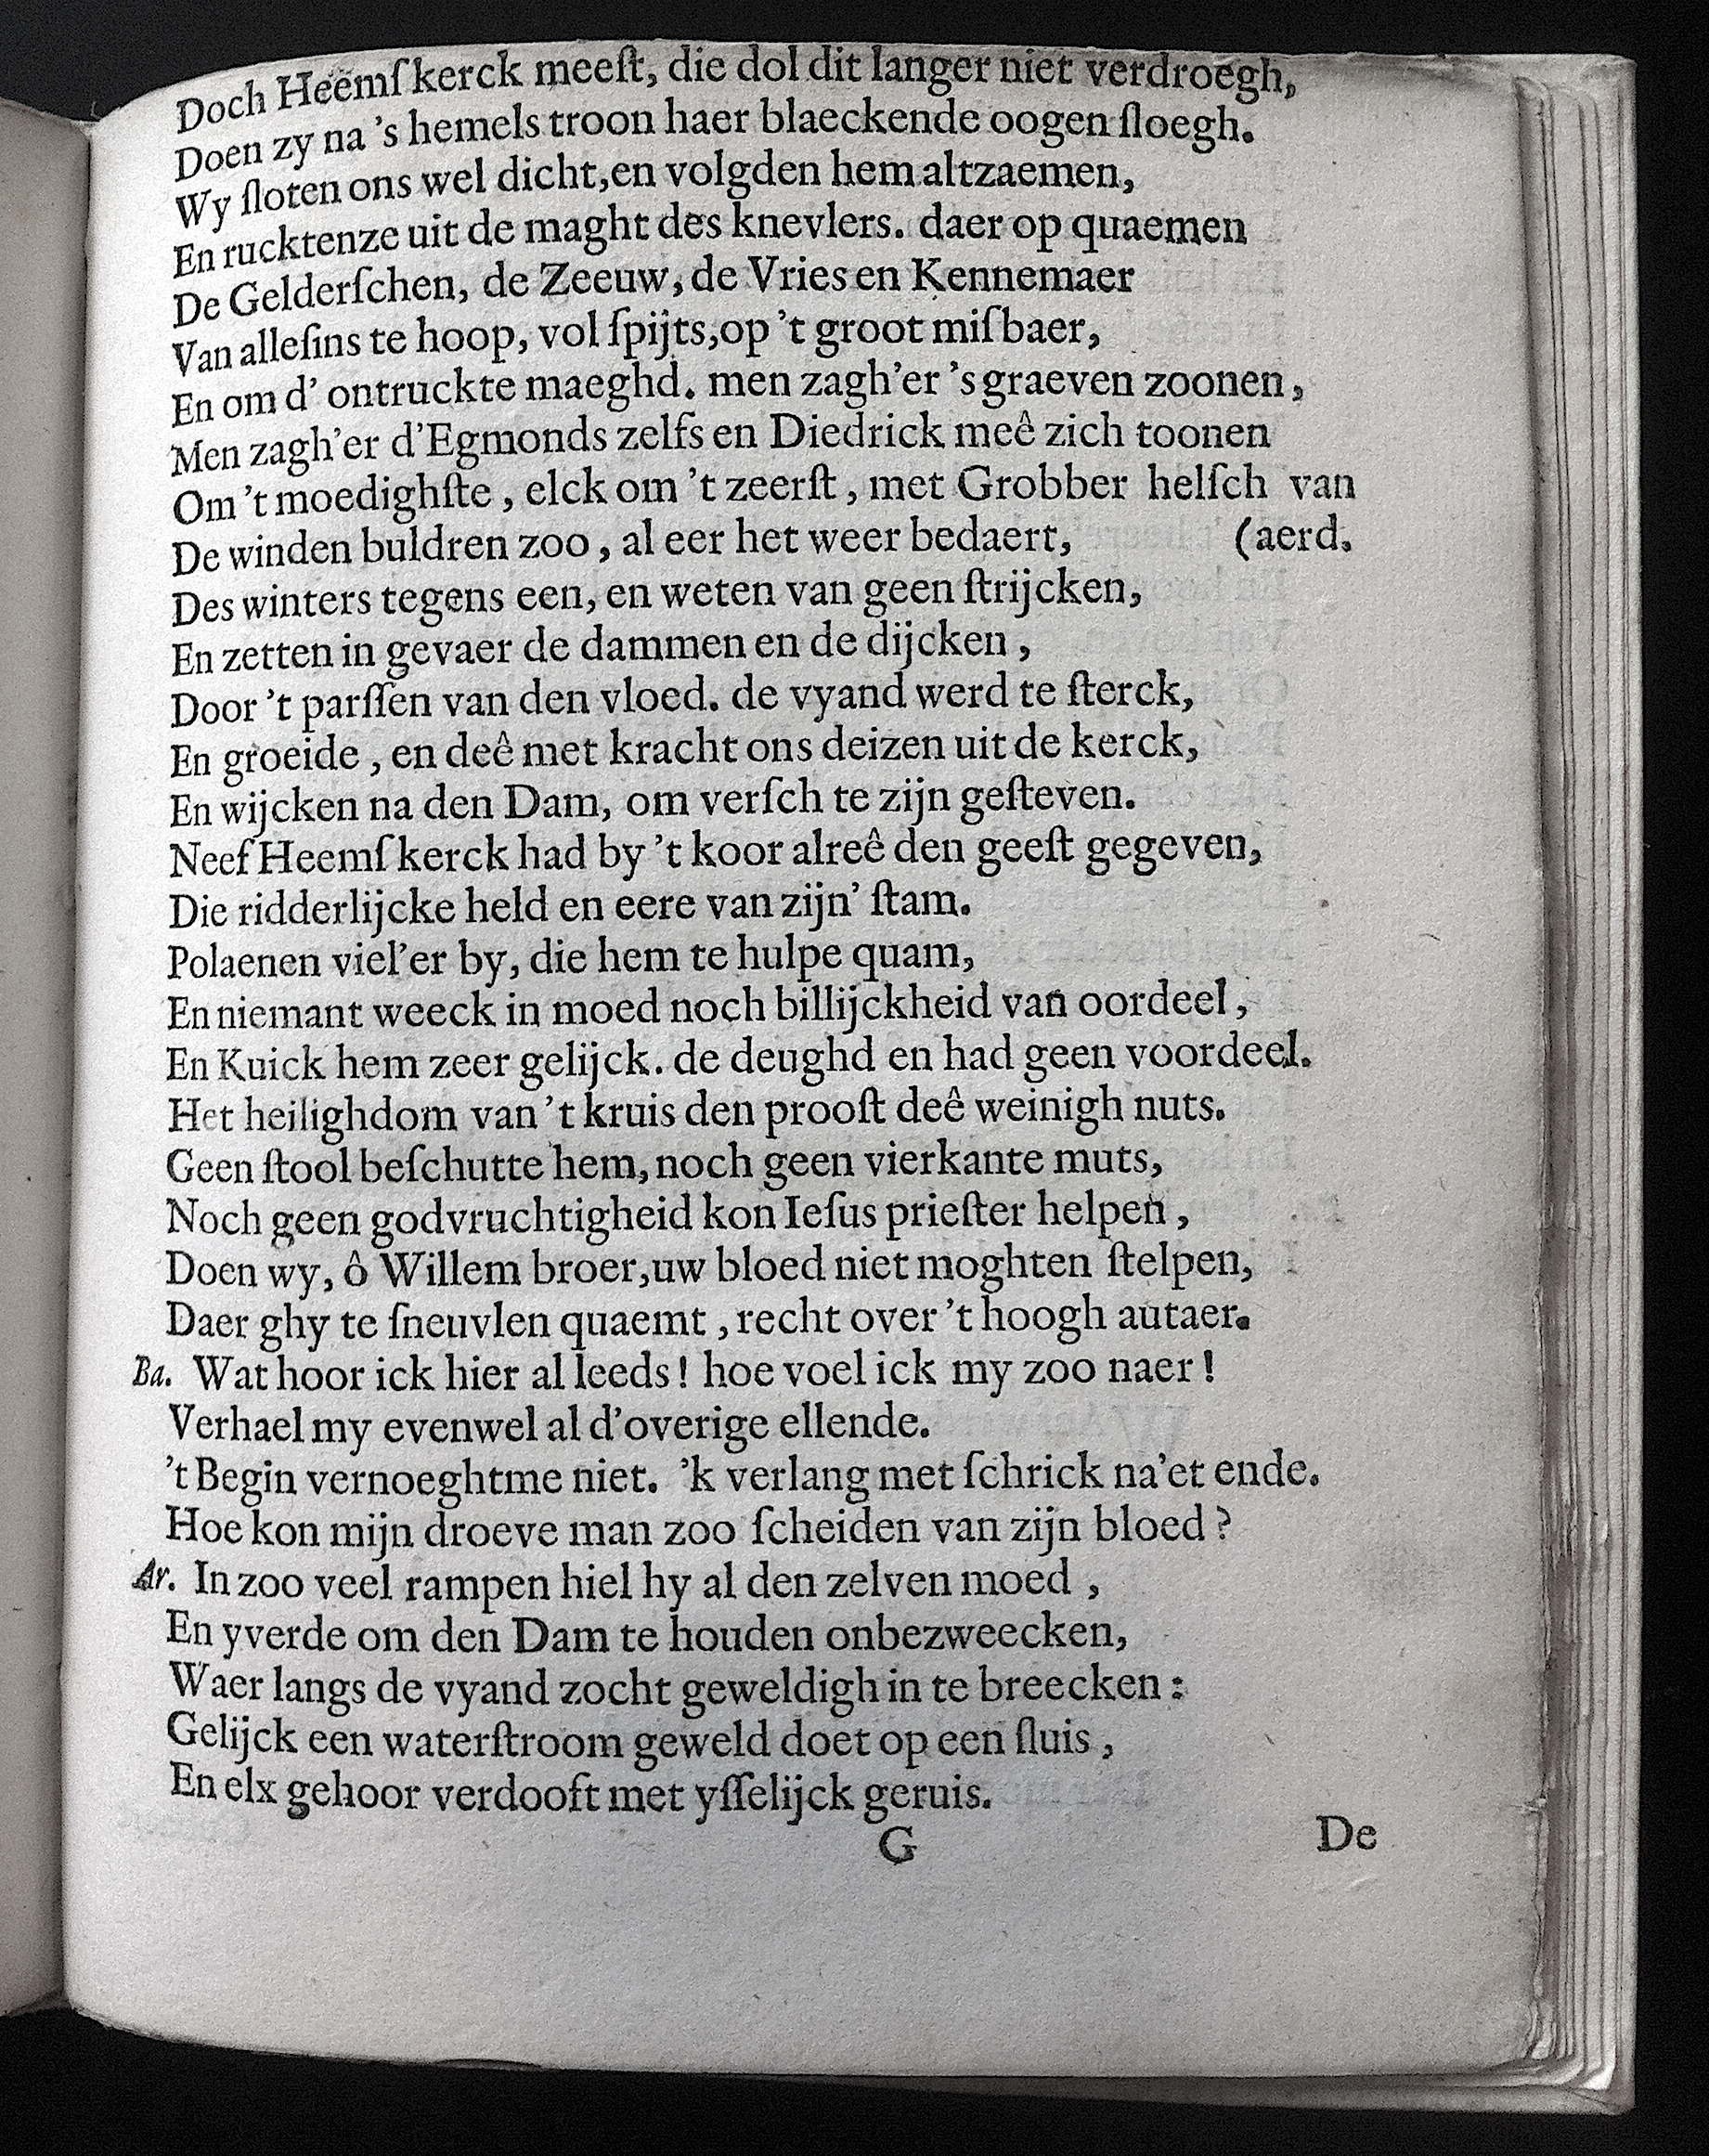 Doch Heemſkerck meeſt, die dol dit langer niet verdroegh,
Doen zy na 's hemels troon haer blaeckende oogen ſloegh.
Wy ſloten ons wel dicht, en volgden hem altzaemen,
En rucktenze uit de maght des knevlers. daer op quaemen
De Gelderſchen, de Zeeuw, de Vries en Kennemaer
Van alleſins te hoop, vol ſpijts, op 't groot miſbaer,
En om d' ontruckte maeghd. men zagh'er 's graeven zoonen,
Men zagh'er d'Egmonds zelfs en Diedrick meê zich toonen
Om 't moedighſte, elck om 't zeerſt, met Grobber helſch van
De winden buldren zoo, al eer het weer bedaert, (aerd.
Des winters tegens een, en weten van geen ſtrijcken,
En zetten in gevaer de dammen en de dijcken,
Door 't parſſen van den vloed. de vyand werd te ſterck,
En groeide, en deê met kracht ons deizen uit de kerck,
En wijcken na den Dam, om verſch te zijn geſteven.
Neef Heemſkerck had by 't koor alreê den geeſt gegeven,
Die ridderlijcke held en eere van zijn' ſtam.
Polaenen viel'er by, die hem te hulpe quam,
En niemant weeck in moed noch billijckheid van oordeel,
En Kuick hem zeer gelijck. de deughd en had geen voordeel.
Het heilighdom van 't kruis den prooſt deê weinigh nuts.
Geen ſtool beſchutte hem, noch geen vierkante muts,
Noch geen godvruchtigheid kon Ieſus prieſter helpen,
Doen wy, ô Willem broer, uw bloed niet moghten ſtelpen,
Daer ghy te ſneuvlen quaemt, recht over 't hoogh autaer.
Ba. Wat hoor ick hier al leeds! hoe voel ick my zoo naer!
Verhael my evenwel al d'overige ellende.
't Begin vernoeghtme niet. 'k verlang met ſchrick na'et ende.
Hoe kon mijn droeve man zoo ſcheiden van zijn bloed?
Ar. In zoo veel rampen hiel hy al den zelven moed,
En yverde om den Dam te houden onbezweecken,
Waer langs de vyand zocht geweldigh in te breecken:
Gelijck een waterſtroom geweld doet op een ſluis,
En elx gehoor verdooft met yſſelijck geruis.
G De